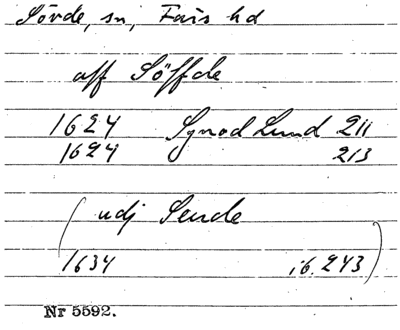 Sövde, sn, Färs hd
aff Söffde
1624 Synod Lund 211
1624 213
(udj Seude
1634 ib. 243)
Nr 5592.